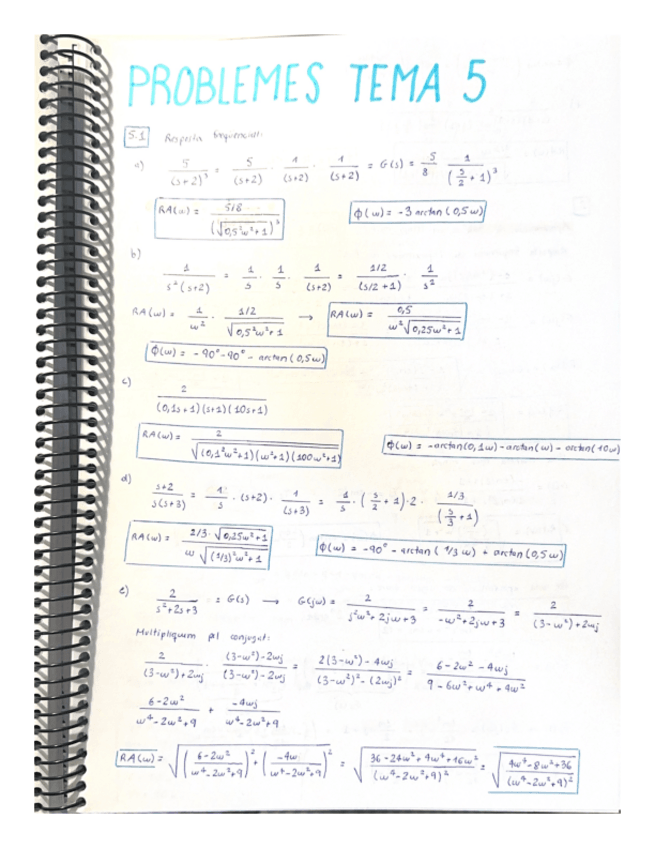 PROBLEMES TEMA 5
5.1 Resposta freqüencial:
a) 5/(s+2)³ = 5/(s+2) · 1/(s+2) · 1/(s+2) = G(s) = 5/8 · 1/(s/2 + 1)³
RA(w) = 5/8 / (√(0,5²w²+1))³ φ(w) = -3 arctan(0,5w)
b)
1/(s²(s+2)) = 1/s · 1/s · 1/(s+2) = 1/2/(s/2+1) · 1/s²
RA(w) = 1/w² · 1/2/√(0,5²w²+1) → RA(w) = 0,5/(w²√(0,25w²+1))
φ(w) = -90°-90° - arctan(0,5w)
c)
2/((0,1s+1)(s+1)(10s+1))
RA(w) = 2/√((0,1²w²+1)(w²+1)(100w²+1)) φ(w) = -arctan(0,1w)-arctan(w)-arctan(10w)
d)
s+2/s(s+3) = 1/s · (s+2) · 1/(s+3) = 1/s · (s/2 + 1)·2 · 1/3/(s/3 + 1)
RA(w) = 2/3·√(0,25w²+1) / w√((1/3)²w²+1) φ(w) = -90° - arctan(1/3 w) + arctan(0,5w)
e) 2/(s²+2s+3) = G(s) → G(jw) = 2/(j²w²+2jw+3) = 2/(-w²+2jw+3) = 2/((3-w²)+2wj)
Multipliquem pel conjugat:
2/((3-w²)+2wj) · ((3-w²)-2wj)/((3-w²)-2wj) = (2(3-w²)-4wj)/((3-w²)²-(2wj)²) = (6-2w²-4wj)/(9-6w²+w⁴+4w²)
(6-2w²)/(w⁴-2w²+9) + (-4wj)/(w⁴-2w²+9)
RA(w) = √(((6-2w²)/(w⁴-2w²+9))² + ((-4w)/(w⁴-2w²+9))²) = √((36-24w²+4w⁴+16w²)/(w⁴-2w²+9)²) = √((4w⁴-8w²+36)/(w⁴-2w²+9)²)